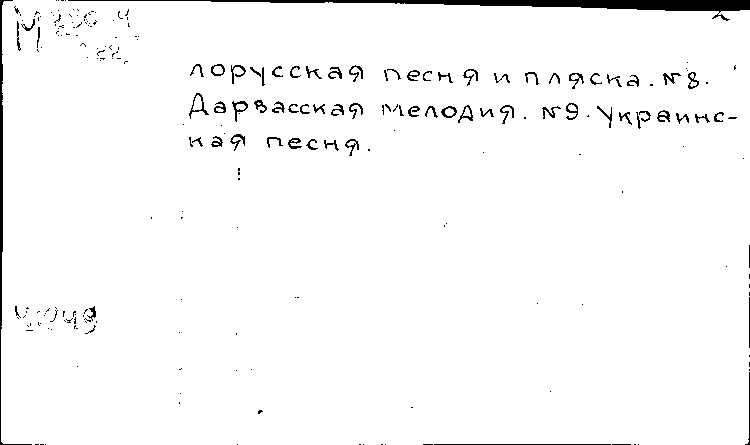 2
лорусская песня и пляска. №8.
Дарвасская мелодия. №9. Украинс-
кая песня.